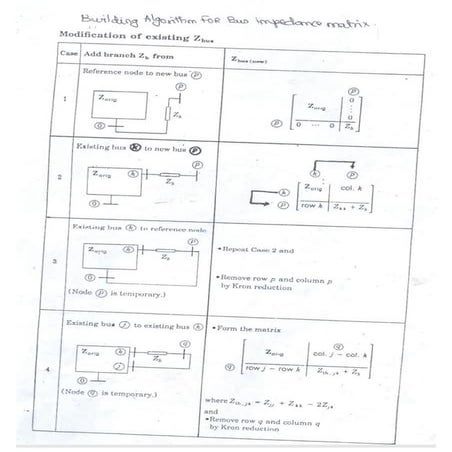 Building Algorithm For Bus impedance matrix.
Modification of existing Zbus
Case Add branch Zb from
Zbus(new)
Reference node to new bus p
1
Zorig
0
p
Zb
p
Zorig
0
⋮
0
p
0 ... 0 Zb
Existing bus k to new bus p
2
Zorig k
p
Zb
0
p
k
p
Zorig col. k
row k Zkk + Zb
Existing bus k to reference node
3
Zorig k
p
Zb
0
(Node p is temporary.)
• Repeat Case 2 and
• Remove row p and column p
by Kron reduction
Existing bus j to existing bus k
4
Zorig k
j
q
Zb
0
(Node q is temporary.)
• Form the matrix
q
q
Zorig col. j – col. k
row j – row k Zth,jk + Zb
where Zth,jk = Zjj + Zkk - 2Zjk
and
• Remove row q and column q
by Kron reduction